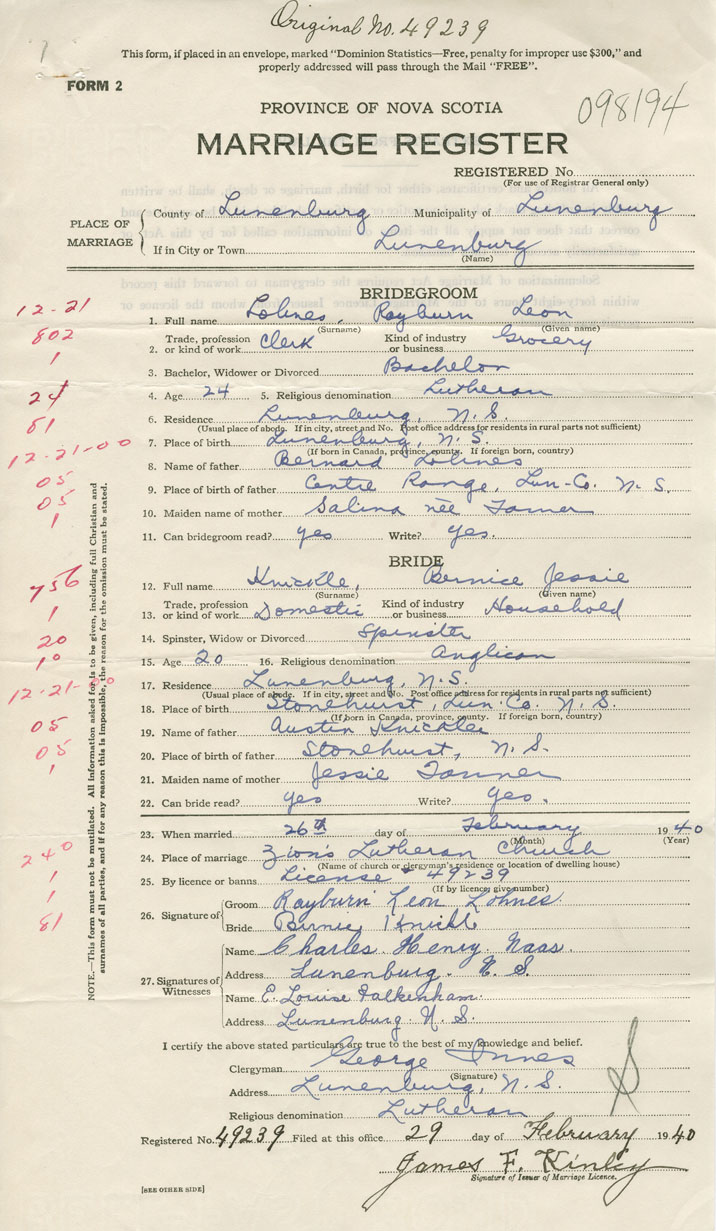 Original No. 49239
This form, if placed in an envelope, marked "Dominion Statistics—Free, penalty for improper use $300," and
properly addressed will pass through the Mail "FREE".
FORM 2
098194
PROVINCE OF NOVA SCOTIA
MARRIAGE REGISTER
REGISTERED No.
(For use of Registrar General only)
PLACE OF MARRIAGE
County of Lunenburg Municipality of Lunenburg
If in City or Town Lunenburg
(Name)
BRIDEGROOM
12-21
1. Full name Lohnes, Rayburn Leon
(Surname) (Given name)
802
2. Trade, profession or kind of work Clerk Kind of industry or business Grocery
1
3. Bachelor, Widower or Divorced Bachelor
24
4. Age 24 5. Religious denomination Lutheran
81
6. Residence Lunenburg, N.S.
(Usual place of abode. If in city, street and No. Post office address for residents in rural parts not sufficient)
12-21-00
7. Place of birth Lunenburg, N.S.
(If born in Canada, province, county. If foreign born, country)
05
8. Name of father Bernard Lohnes
05
9. Place of birth of father Centre Range, Lun-Co. N.S.
1
10. Maiden name of mother Salina née Tanner
11. Can bridegroom read? yes Write? yes.
BRIDE
756
12. Full name Knickle, Bernice Jessie
(Surname) (Given name)
1
13. Trade, profession or kind of work Domestic Kind of industry or business Household
20
14. Spinster, Widow or Divorced Spinster
10
15. Age 20 16. Religious denomination Anglican
12-21-00
17. Residence Lunenburg, N.S.
(Usual place of abode. If in city, street and No. Post office address for residents in rural parts not sufficient)
18. Place of birth Stonehurst, Lun. Co. N.S.
(If born in Canada, province, county. If foreign born, country)
05
19. Name of father Austin Knickle
05
20. Place of birth of father Stonehurst, N.S.
1
21. Maiden name of mother Jessie Tanner
22. Can bride read? yes Write? yes.
23. When married 26th day of February 1940
(Month) (Year)
240
24. Place of marriage Zion's Lutheran Church
(Name of church or clergyman's residence or location of dwelling house)
1
25. By licence or banns License # 49239
(If by licence, give number)
1
26. Signature of
Groom Rayburn Leon Lohnes
81
Bride Bernice Knickle
27. Signatures of Witnesses
Name Charles Henry Naas
Address Lunenburg. N.S.
Name E. Louise Falkenham.
Address Lunenburg N.S.
I certify the above stated particulars are true to the best of my knowledge and belief.
Clergyman George Innes
(Signature)
Address Lunenburg, N.S.
Religious denomination Lutheran
Registered No. 49239 Filed at this office 29 day of February 1940
James F. Kinley
Signature of Issuer of Marriage Licence.
[SEE OTHER SIDE]
NOTE.—This form must not be mutilated. All information asked for is to be given, including full Christian and
surnames of all parties, and if for any reason this is impossible, the reason for the omission must be stated.